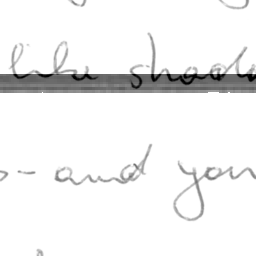 like shado
- and you